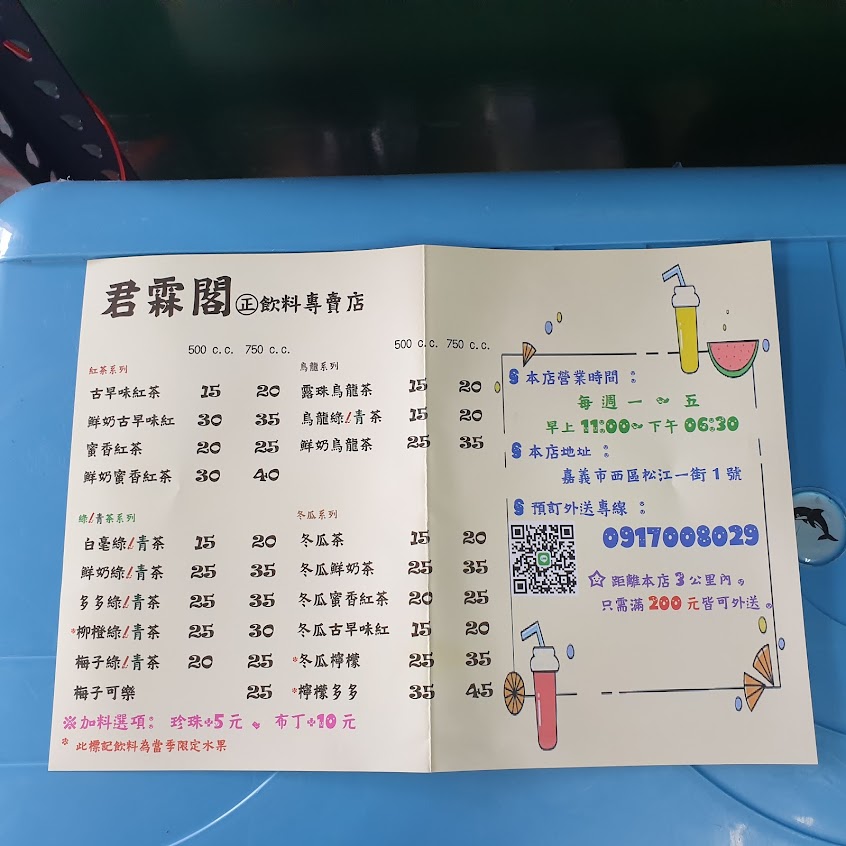 君霖閣㊣飲料專賣店
500 c.c. 750 c.c.
紅茶系列
古早味紅茶 15 20
鮮奶古早味紅 30 35
蜜香紅茶 20 25
鮮奶蜜香紅茶 30 40
綠/青茶系列
白毫綠/青茶 15 20
鮮奶綠/青茶 25 35
多多綠/青茶 25 35
*柳橙綠/青茶 25 30
梅子綠/青茶 20 25
梅子可樂 25
500 c.c. 750 c.c.
烏龍系列
露珠烏龍茶 15 20
烏龍綠/青茶 15 20
鮮奶烏龍茶 25 35
冬瓜系列
冬瓜茶 15 20
冬瓜鮮奶茶 25 35
冬瓜蜜香紅茶 20 25
冬瓜古早味紅 15 20
*冬瓜檸檬 25 35
*檸檬多多 35 45
※加料選項: 珍珠+5元、布丁+10元
* 此標記飲料為當季限定水果
§ 本店營業時間:
每週一~五
早上11:00~下午06:30
§ 本店地址:
嘉義市西區松江一街1號
§ 預訂外送專線:
0917008029
☆距離本店3公里內,
只需滿200元皆可外送。